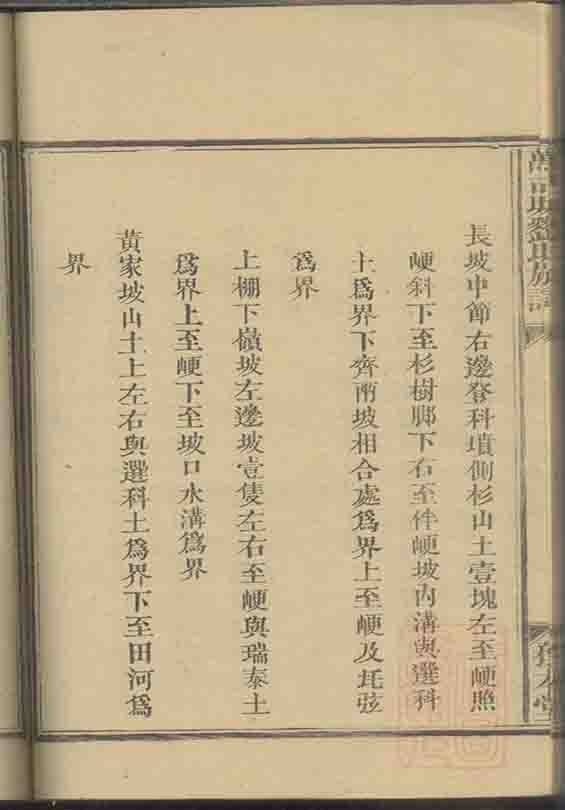 長坡中節右邊登科墳側杉山土壹塊左至𡹴照
𡹴斜下至杉樹脚下右至伴𡹴坡內溝與選科
土爲界下齊兩坡相合處爲界上至𡹴及圫弦
爲界
上棚下嶺坡左邊坡壹隻左右至𡹴與瑞泰土
爲界上至𡹴下至坡口水溝爲界
黃家坡山土上左右與選科土爲界下至田河爲
界
氏族譜
堂